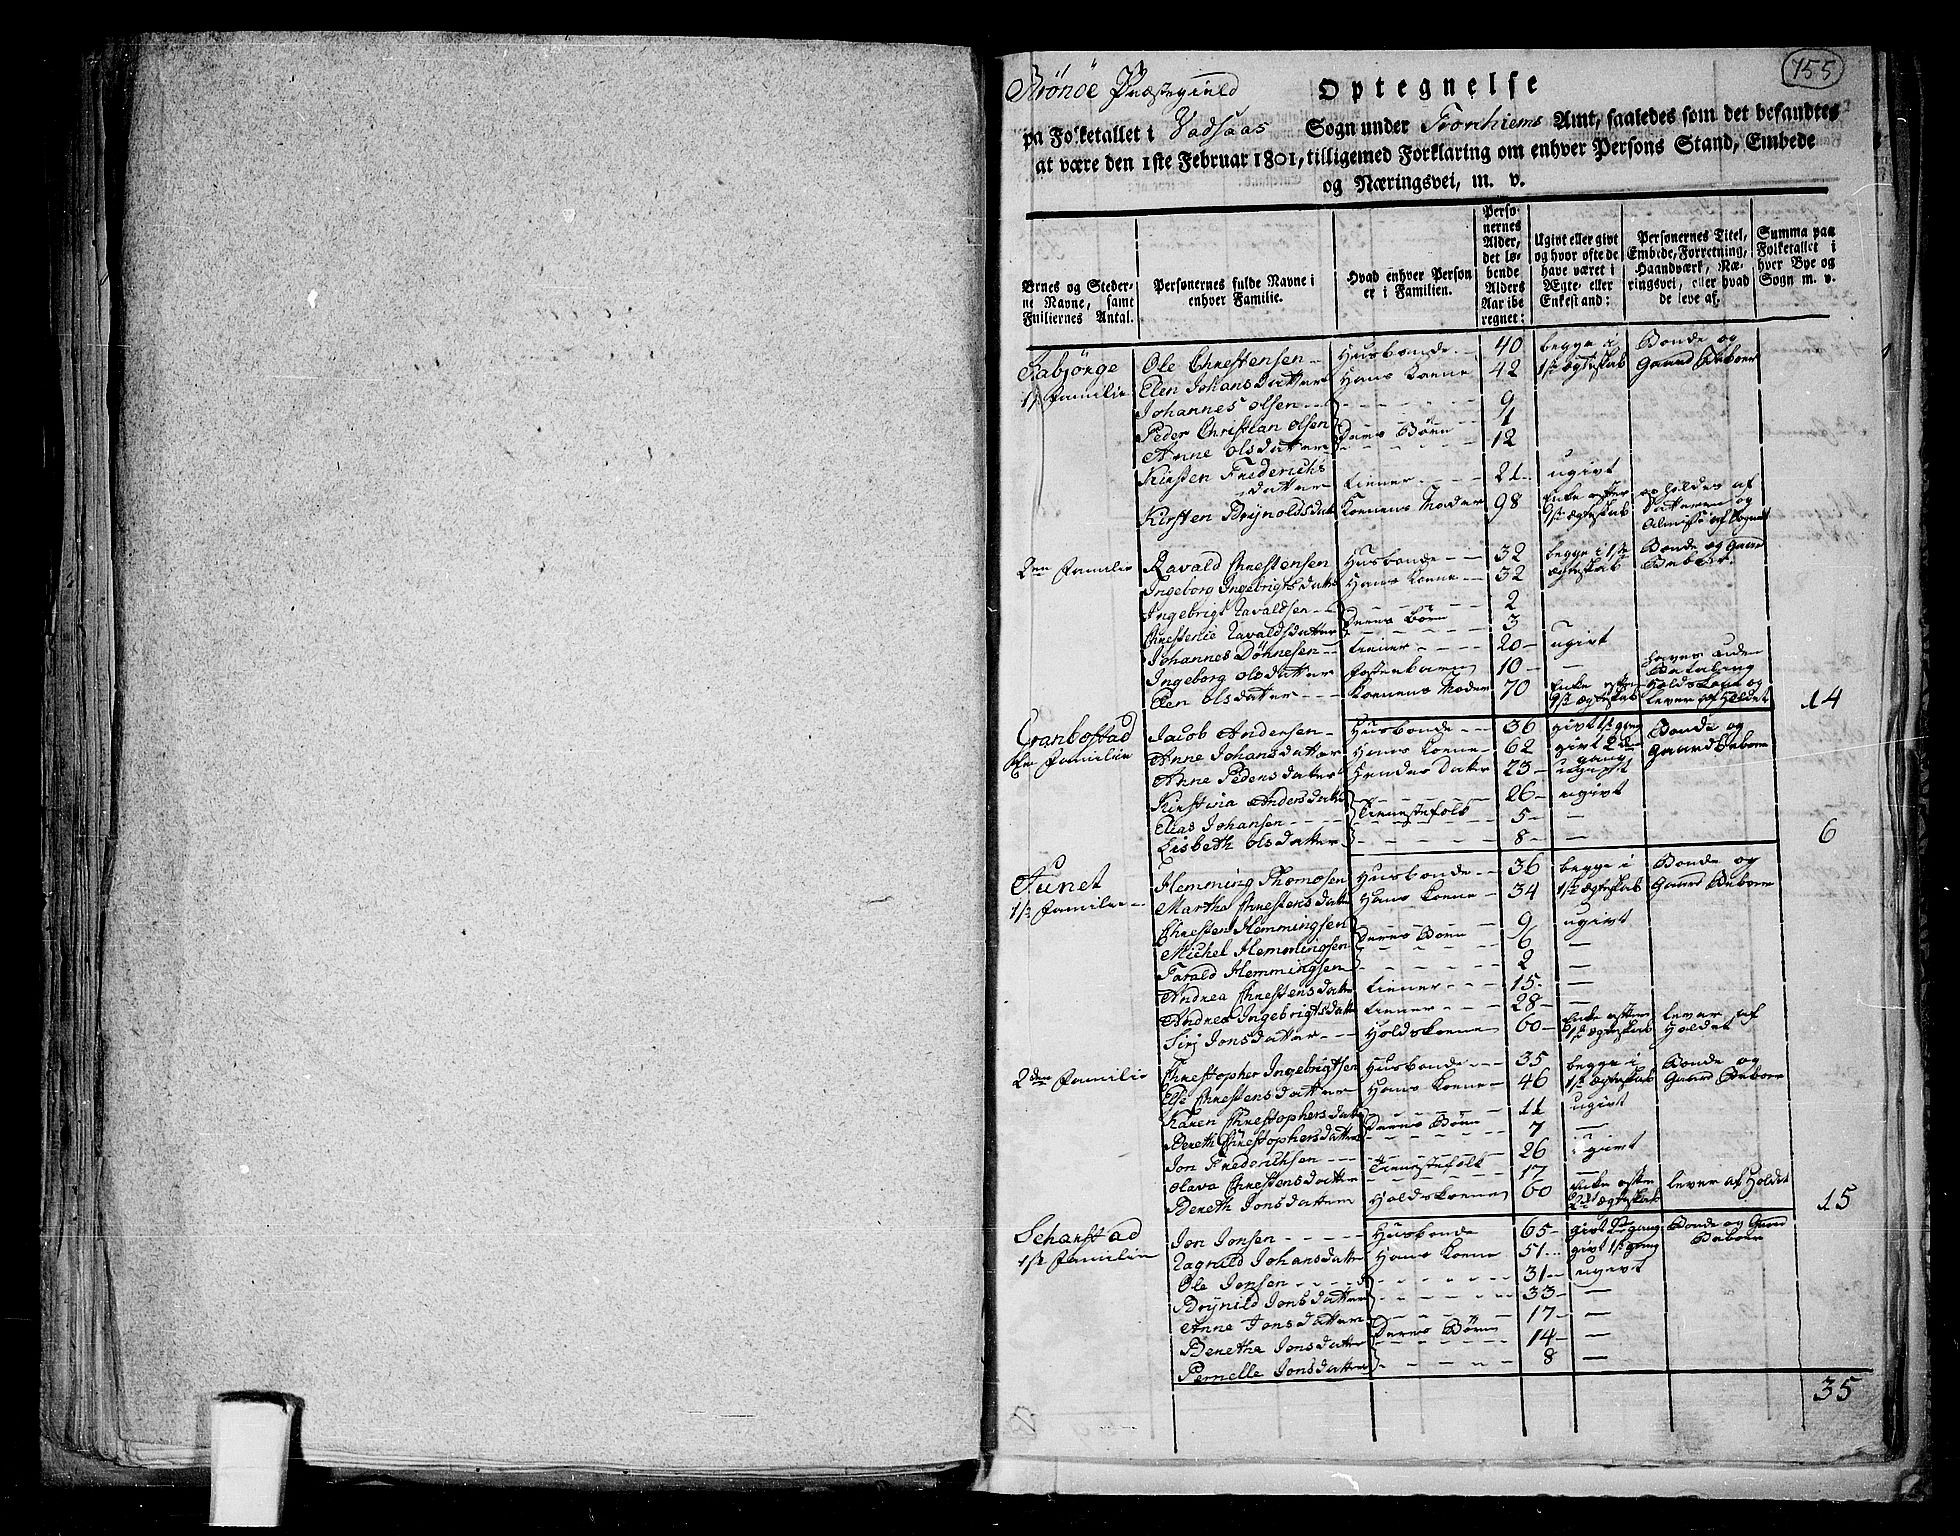 755
Brönöe Præstegield
Optegnelse
paa Folketallet i Vadsaas Sogn under Tronhiems Amt, saaledes som det befandtes
at være den 1ste Februar 1801, tilligemed Forklaring om enhver Persons Stand, Embede
og Næringsvei, m. v.
Byernes og Stedernes Navne, samt Familiernes Antal.
Personernes fulde Navne i enhver Familie.
Hvad enhver Person er i Familien.
Personernes Alder, det løbende Alders Aar iberegnet:
Ugivt eller givt og hvor ofte de have været i Ægte- eller Enkestand:
Personernes Titel, Embede, Forretning, Haandværk, Næringsvei, eller hvad de leve af.
Summa paa Folketallet i hver Bye og Sogn m. v.
Ole Christensen Husbonde 40 begge i Bonde og
1ste Familie Elen Johansdatter Hans Kone 42 1ste ægteskab Gaard Beboer
Johannes Olsen 9
Peder Christian Olsen Deres Börn 1
Anne Olsdatter 12
Kirsten Frederichsdatter tiener 21 ugivt
Kirsten Brynoldsdatter Konens Moder 98 Enke efter 1ste ægteskab
2den Familie Zavald Christensen Husbonde 32 begge i 1ste Bonde og Gaard
Ingeborg Ingebrigtsdatter Hans Kone 32 ægteskab Beboer
Ingebrigt Zavaldsen 2
Christenie Zavaldsdatter Deres börn 3
Johannes Dönnesen tiener 20 ugivt
Ingeborg Olsdatter Fosterbarn 10 — haves uden Betaling
Elen Olsdatter Konens Moder 70 Enke efter 1ste ægteskab Holdskone og lever af Holdet
14
Tranbostad Jacob Andersen Husbonde 36 givt 1ste gang Bonde og
1ste Familie Anne Johansdatter Hans Kone 62 givt 2den gang Gaard Beboer
Anne Pedersdatter Hendes datter 23 ugivt
Kirstina Andersdatter 26 ugivt
Elias Johansen Tienestefolk 5 —
Lisbeth Olsdatter 8 —
6
Tunet Hemming Thomosen Husbonde 36 begge i Bonde og
1ste Familie Martha Christensdatter Hans Kone 34 1ste ægteskab Gaard Beboer
Christen Hemmingsen 9 ugivt
Michel Hemmingsen Deres Börn 6 —
Tarald Hemmingsen 2 —
Andrea Christensdatter tiener 15 —
Andrea Ingebrigtsdatter tiener 28 —
Siri Jonsdatter Holdskone 60 Enke efter 1ste ægteskab lever af Holdet
2den Familie Christopher Ingebrigtsen Husbonde 35 begge i Bonde og
Else Christensdatter Hans Kone 46 1ste ægteskab Gaard Beboer
Karen Christophersdatter 11 ugivt
Bereth Christophersdatter Deres Börn 7 —
Jon Frederichsen 26 ugivt
Olava Christensdatter Tienestefolk 17 —
Bereth Jonsdatter Holdskone 60 Enke efter 2det ægteskab lever af Holdet
15
Scharstad Jon Jonsen Husbonde 65 givt gang Bonde og Gaard
1ste Familie Ragnild Johansdatter Hans Kone 51 givt 1ste gang Beboer
Ole Jonsen 31 ugivt
Brynild Jonsdatter 33 —
Anne Jonsdatter 17 —
Beretha Jonsdatter Deres Börn 14 —
Pernelle Jonsdatter 8 —
35